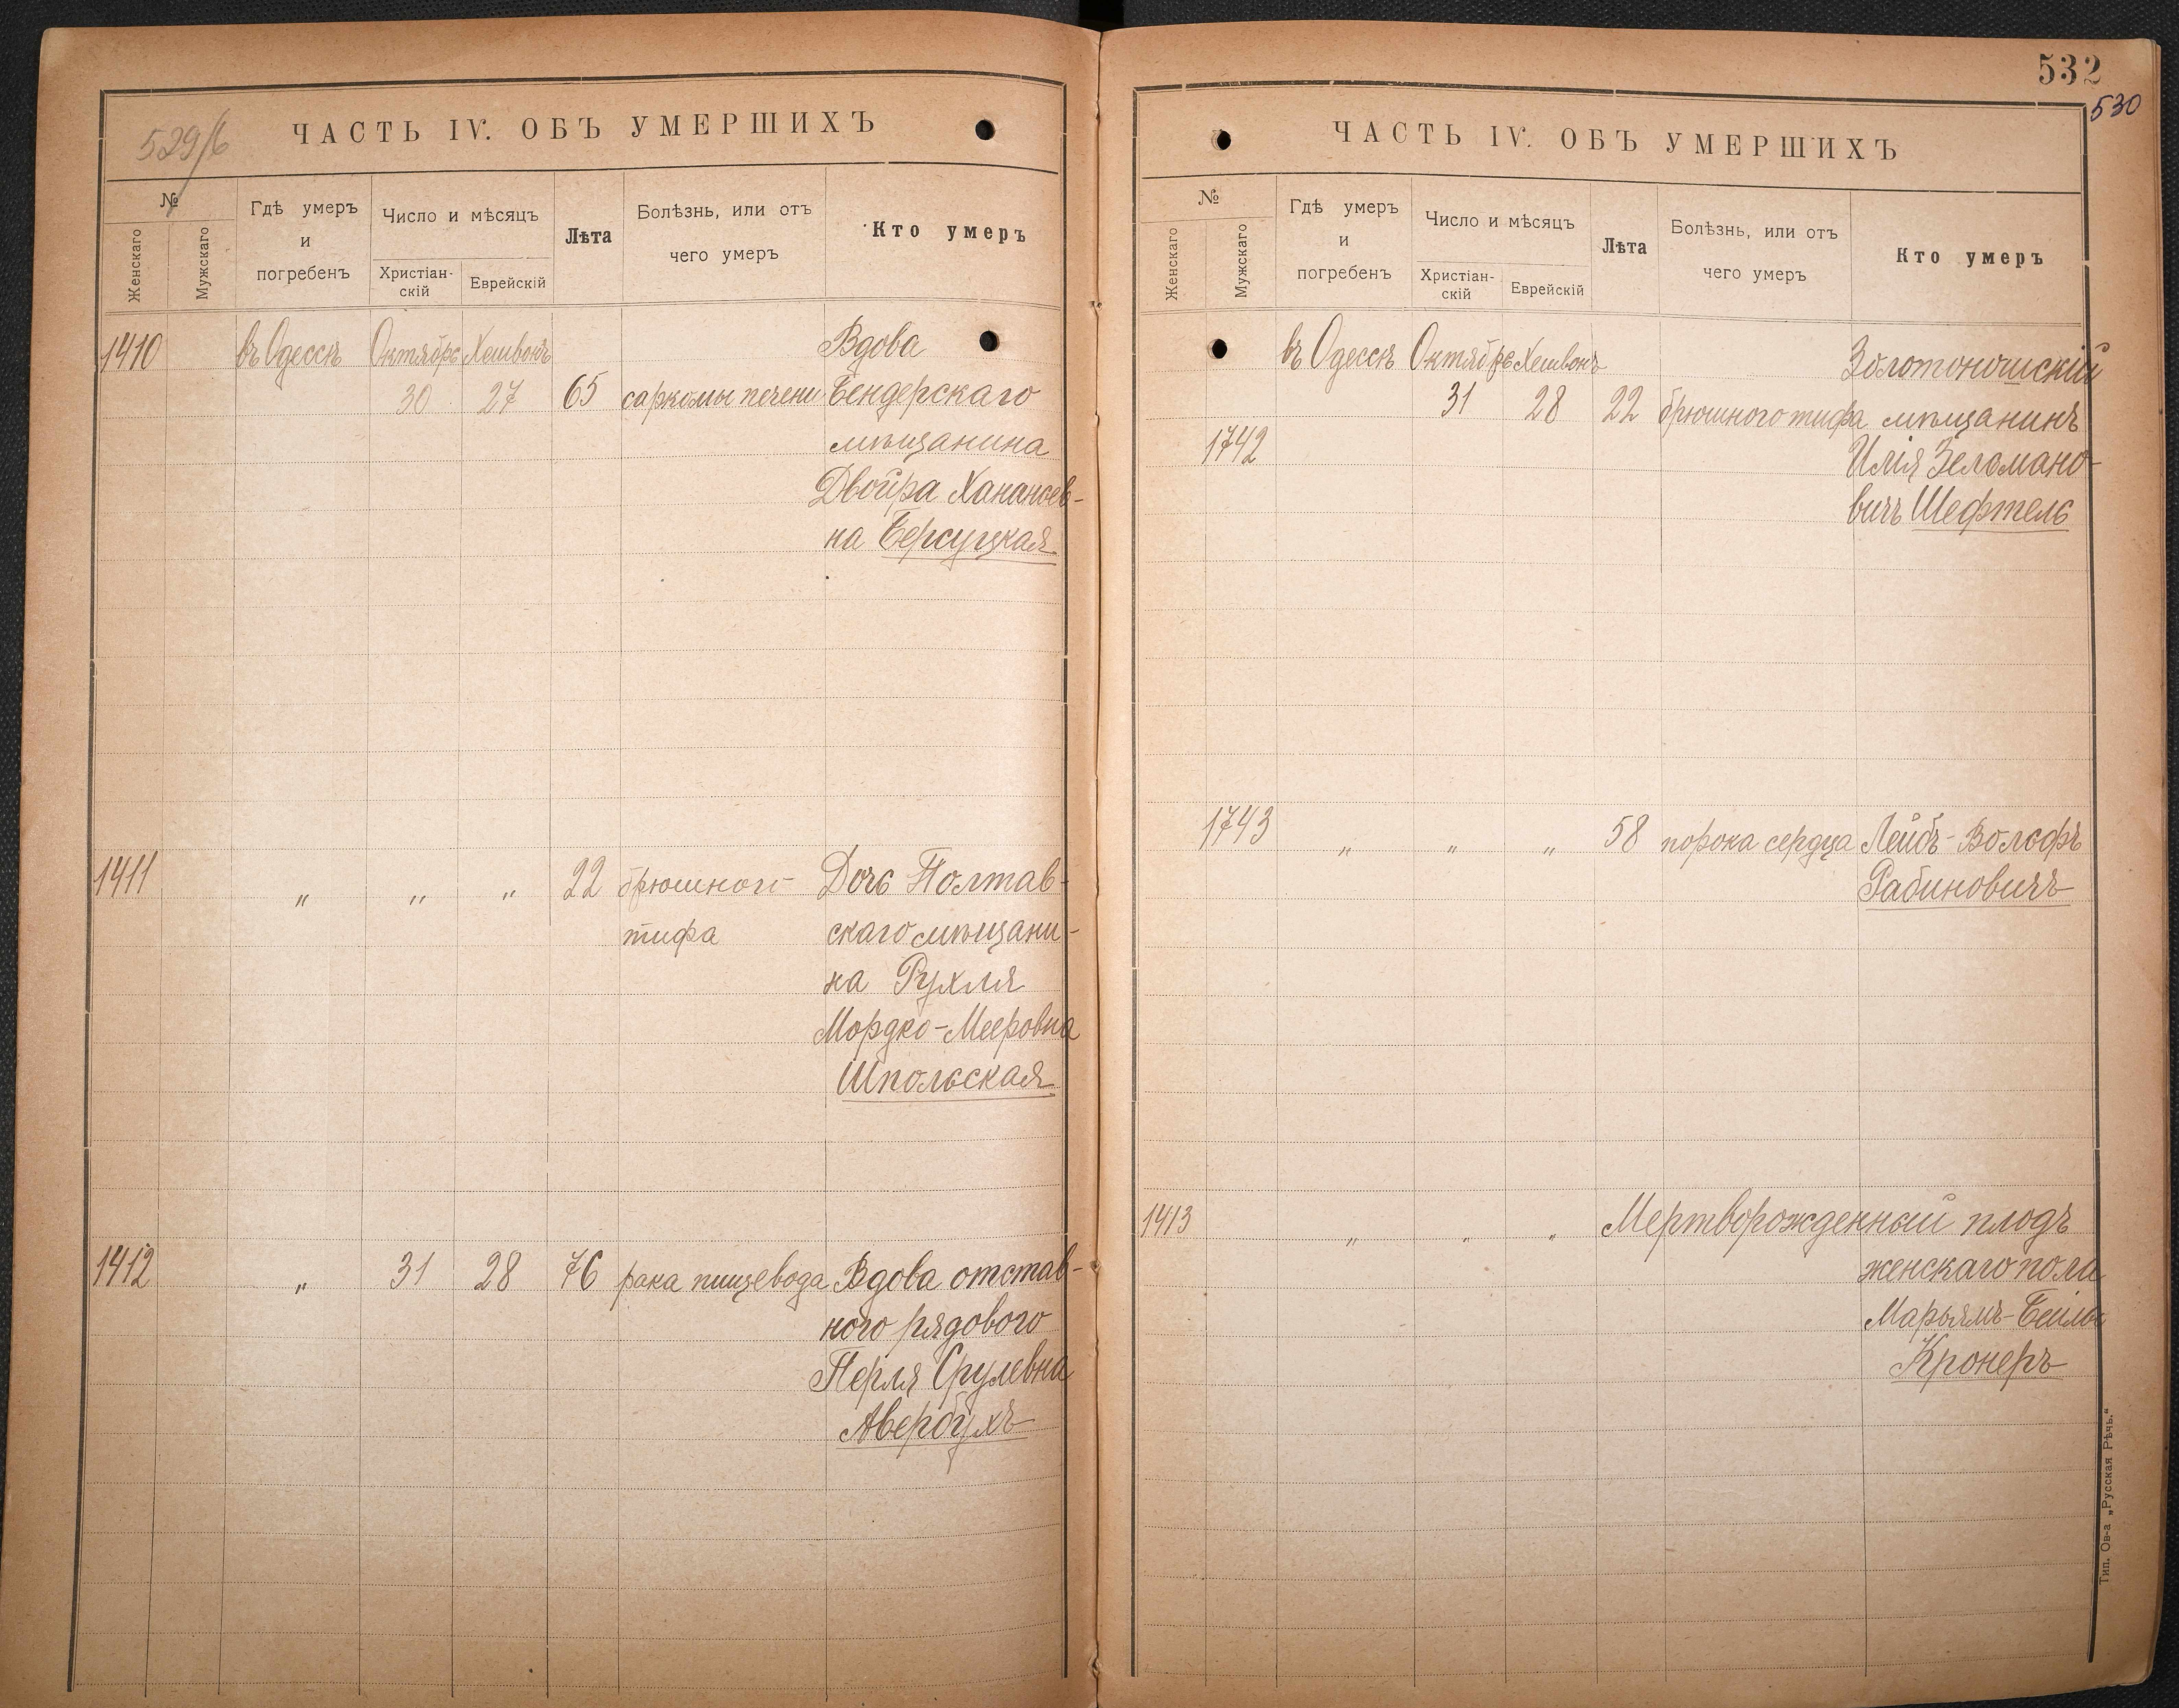 529/б
ЧАСТЬ IV. ОБЪ УМЕРШИХЪ
№
Женскаго
Мужскаго
Гдѣ умеръ
и
погребенъ
Число и мѣсяцъ
Христіан-
скій
Еврейскій
Лѣта
Болѣзнь, или отъ
чего умеръ
Кто умеръ
1410 въ Одессѣ Октябрь Хешвонъ Вдова
30 27 65 саркомы печени Бендерскаго
мѣщанина
Двойра Хананьев-
на Берсуцкая
1411 „ „ „ 22 брюшного Дочь Полтав-
тифа скаго мѣщани-
на Рухля
Мордко-Мееровна
Шпольская
1412 „ 31 28 76 рака пищевода Вдова отстав-
ного рядового
Перля Срулевна
Авербухъ
532
530
ЧАСТЬ IV. ОБЪ УМЕРШИХЪ
№
Женскаго
Мужскаго
Гдѣ умеръ
и
погребенъ
Число и мѣсяцъ
Христіан-
скій
Еврейскій
Лѣта
Болѣзнь, или отъ
чего умеръ
Кто умеръ
въ Одессѣ Октябрь Хешвонъ Золотоношскій
31 28 22 брюшного тифа мѣщанинъ
1742 Илія Зельмано-
вичъ Шефтель
1743 „ „ „ 58 порока сердца Лейбъ-Вольфъ
Рабиновичъ
1413 „ „ „ Мертворожденный плодъ
женскаго пола
Марьямъ-Бейлы
Кронеръ
Тип. Ов-а „Русская Рѣчь.“